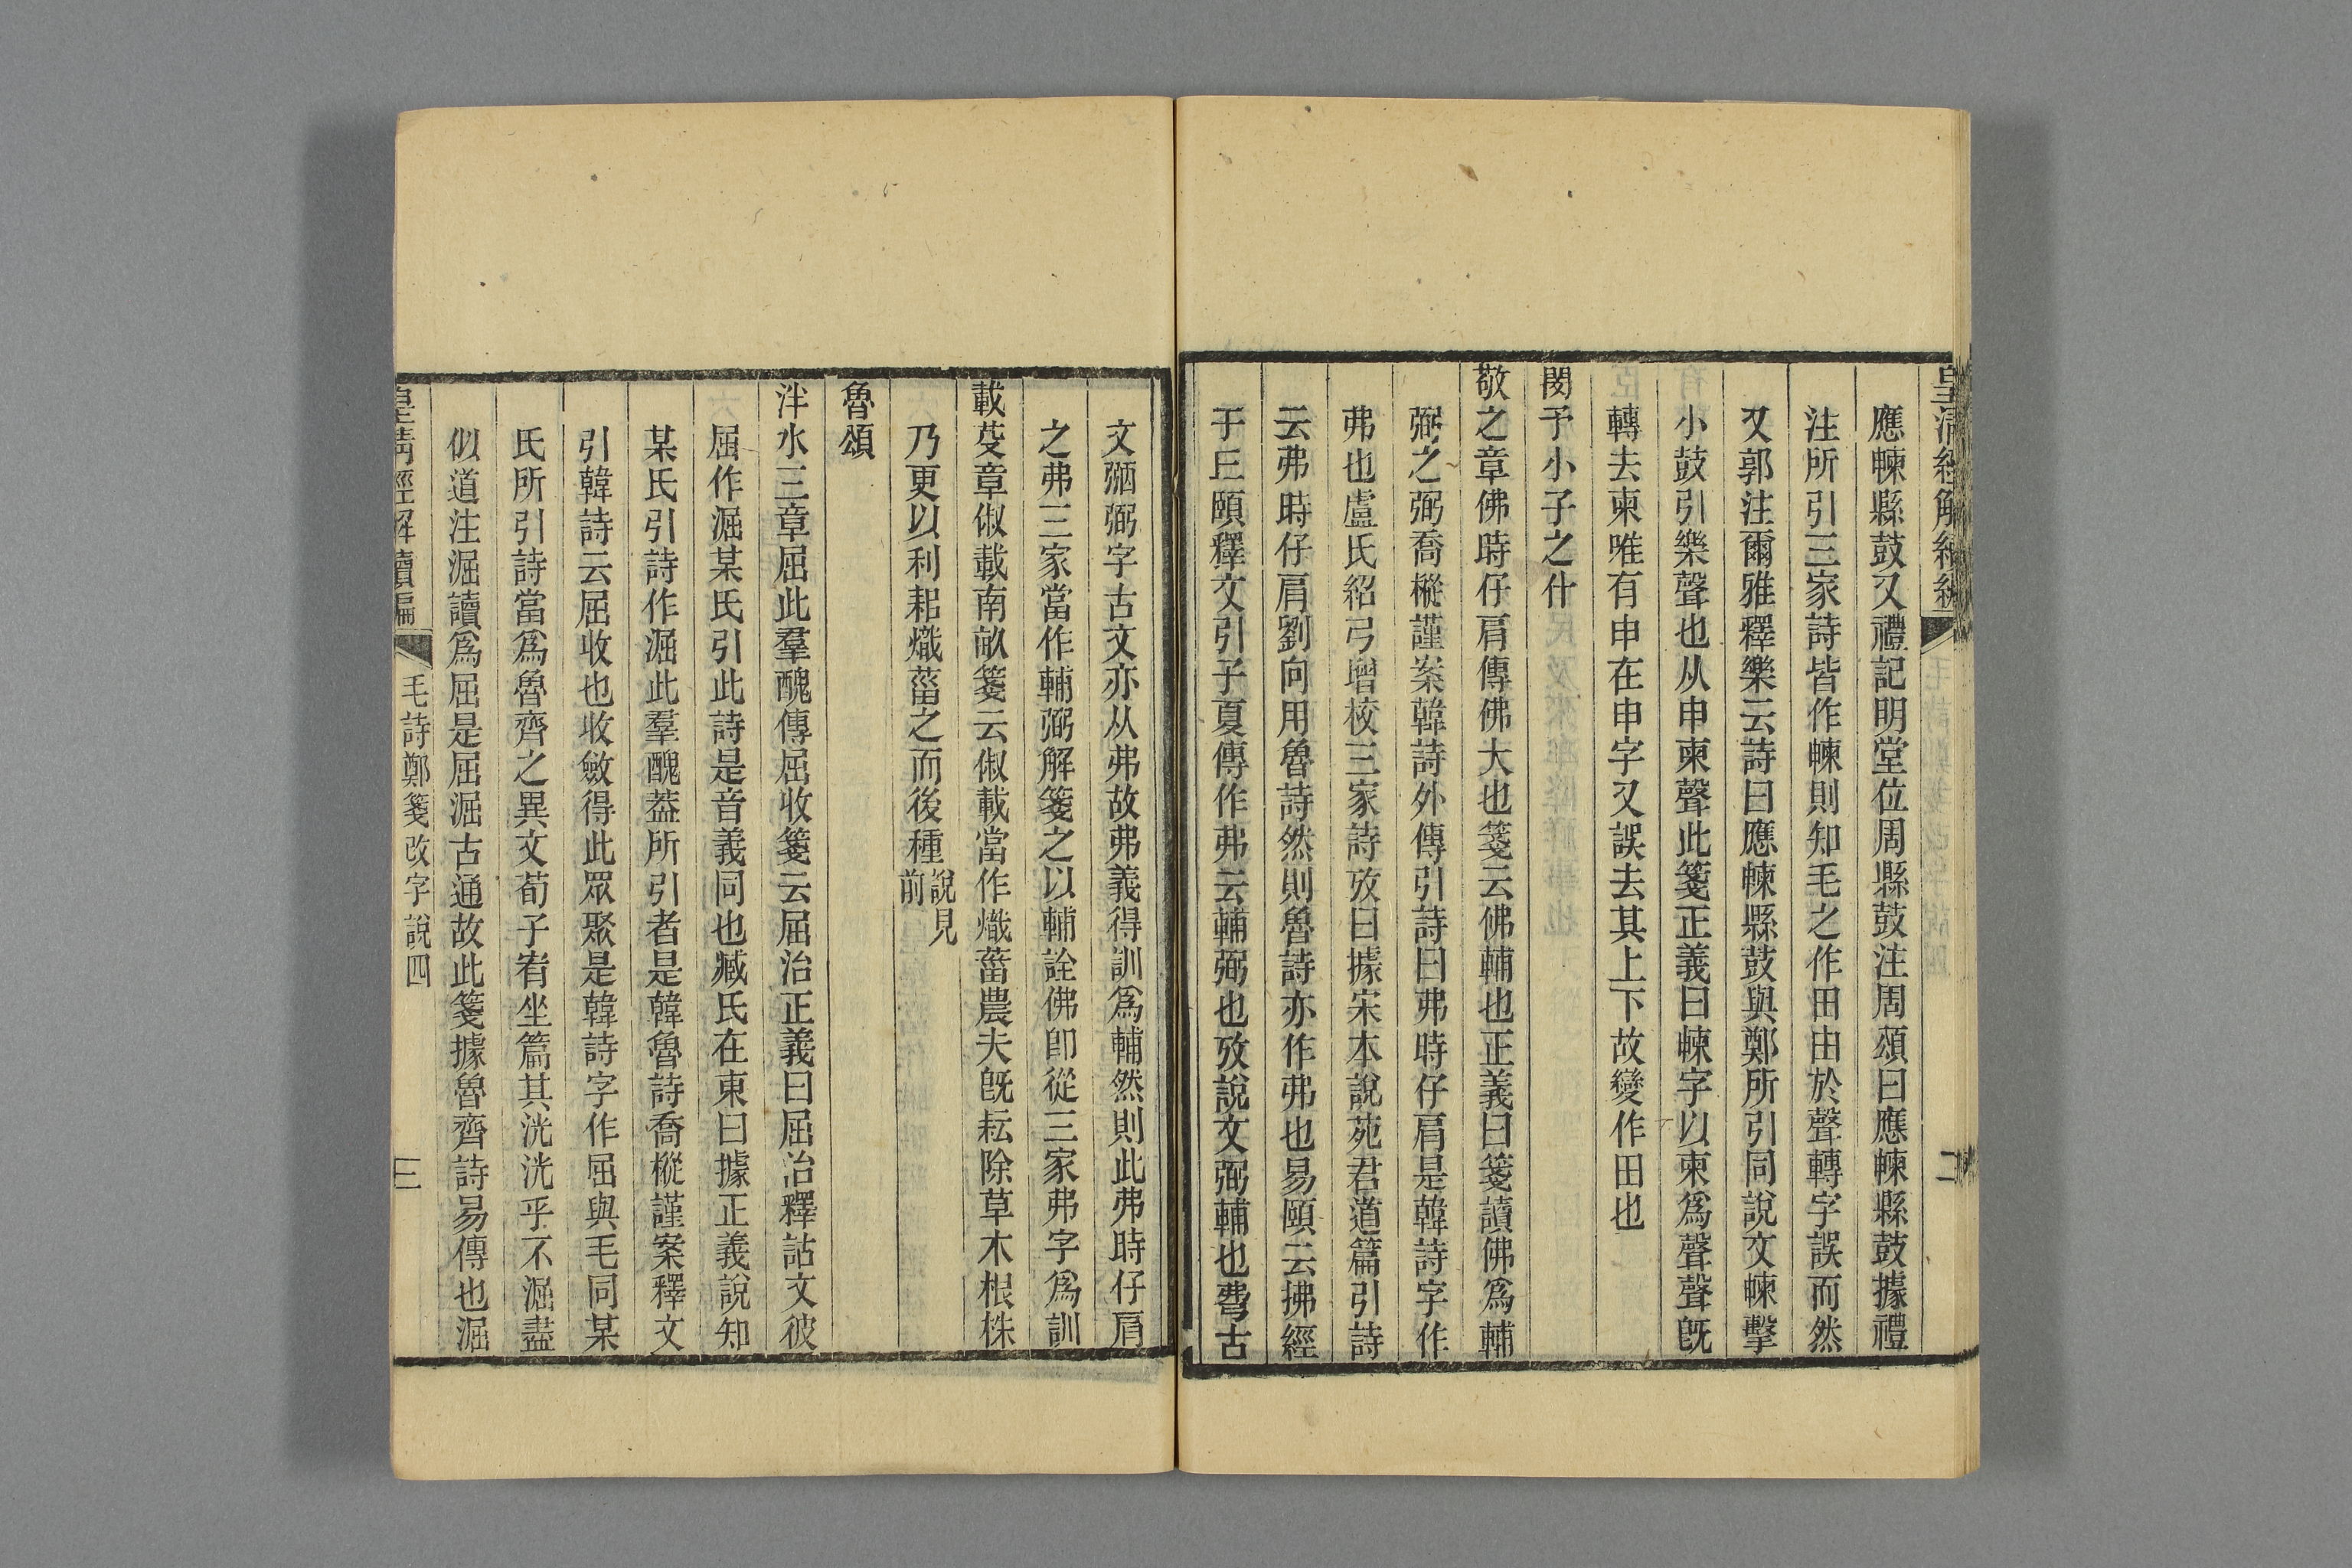 皇清經解續編
二
應朄縣鼓又禮記明堂位周縣鼓注周頌曰應朄縣鼓據禮
注所引三家詩皆作朄則知毛之作田由於聲轉字誤而然
又郭注爾雅釋樂云詩曰應朄縣鼓與鄭所引同說文朄擊
小鼓引樂聲也从申柬聲此箋正義曰朄字以柬爲聲聲旣
轉去柬唯有申在申字又誤去其上下故變作田也
閔予小子之什
敬之章佛時仔肩傳佛大也箋云佛輔也正義曰箋讀佛爲輔
弼之弼喬樅謹案韓詩外傳引詩曰弗時仔肩是韓詩字作
弗也盧氏紹弓增校三家詩攷曰據宋本說苑君道篇引詩
云弗時仔肩劉向用魯詩然則魯詩亦作弗也易頤云拂經
于𠀉頤釋文引子夏傳作弗云輔弼也攷說文弼輔也𢐀古
文𢐡弼字古文亦从弗故弗義得訓爲輔然則此弗時仔肩
之弗三家當作輔弼解箋之以輔詮佛卽從三家弗字爲訓
載芟章俶載南畝箋云俶載當作熾菑農夫旣耘除草木根株
乃更以利耜熾菑之而後種說見
前
魯頌
泮水三章屈此羣醜傳屈收箋云屈治正義曰屈治釋詁文彼
屈作淈某氏引此詩是音義同也臧氏在東曰據正義說知
某氏引詩作淈此羣醜葢所引者是韓魯詩喬樅謹案釋文
引韓詩云屈收也收斂得此眾聚是韓詩字作屈與毛同某
氏所引詩當爲魯齊之異文荀子宥坐篇其洸洸乎不淈盡
似道注淈讀爲屈是屈淈古通故此箋據魯齊詩易傳也淈
皇清經解續編
毛詩鄭箋改字說四
三